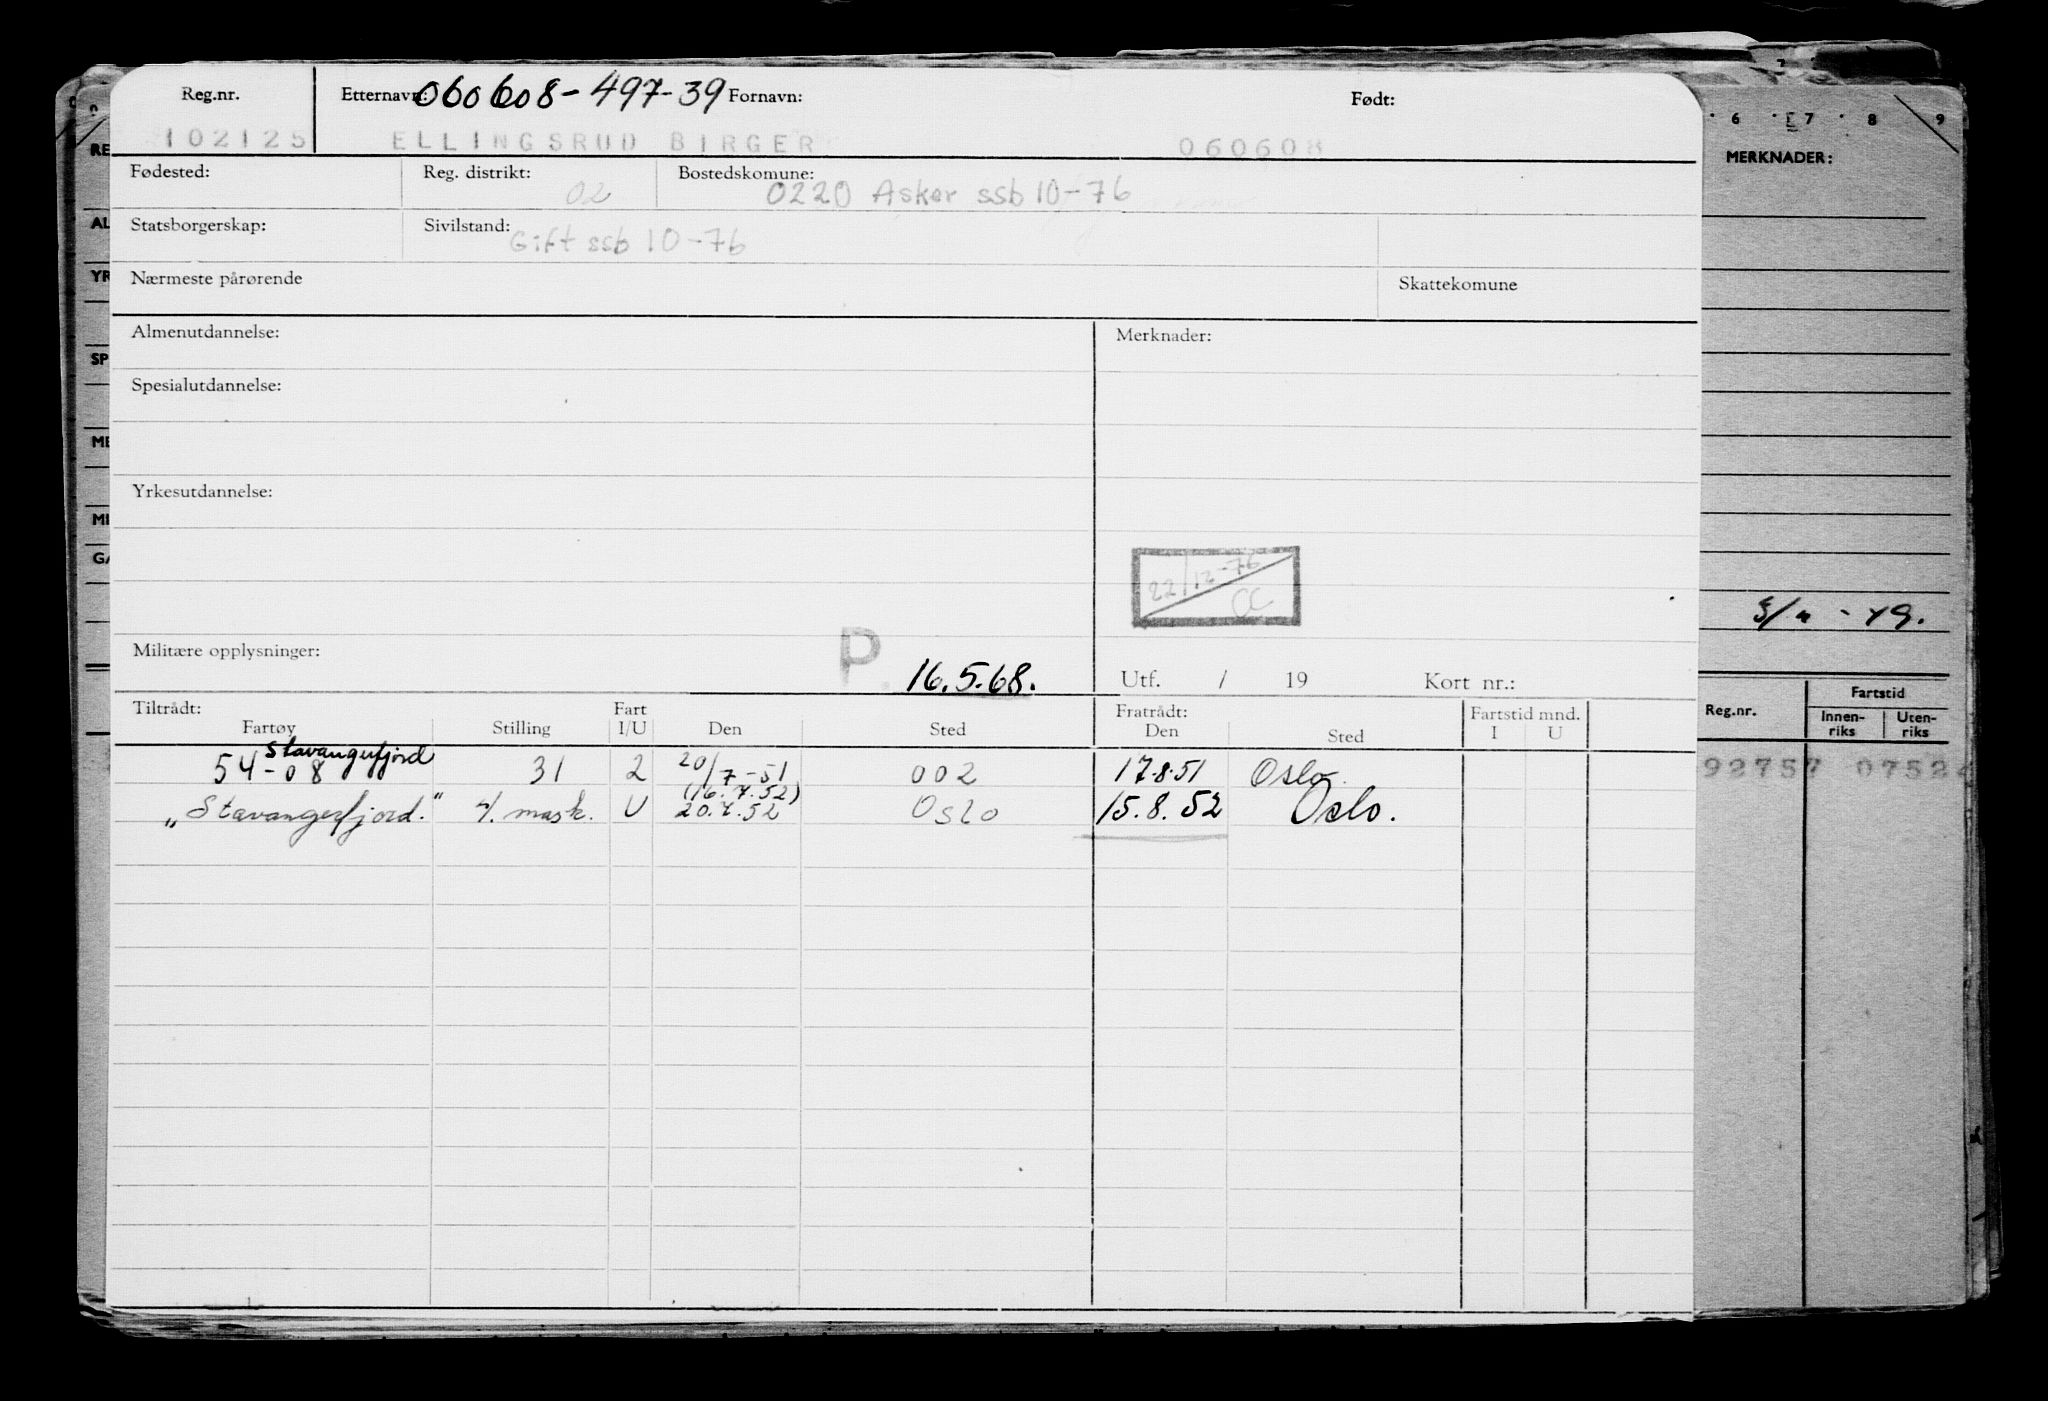 Reg.nr. Etternavn: 060608-497-39 Fornavn: Født:
102125 ELLINGSRUD BIRGER 060608
Fødested: Reg. distrikt: 02 Bostedskomune: 0220 Asker ssb 10-76
Statsborgerskap: Sivilstand: Gift ssb 10-76
Nærmeste pårørende Skattekomune
Almenutdannelse: Merknader:
Spesialutdannelse:
Yrkesutdannelse:
22/12-76
Militære opplysninger: P 16.5.68. Utf. / 19 Kort nr.:
Tiltrådt: Fratrådt: Fartstid mnd.
Fartøy Stilling Fart I/U Den Sted Den Sted I U
Stavangerfjord
54-08 31 2 20/7-51 002 17.8.51 Oslo.
(16.7.52)
"Stavangerfjord." 4. mask. U 20.7.52 Oslo 15.8.52 Oslo.
6 7 8 9
MERKNADER:
Reg.nr. Fartstid
Innen-riks Uten-riks
92757 0752
RE
AL
YR
SP
ME
MI
GA